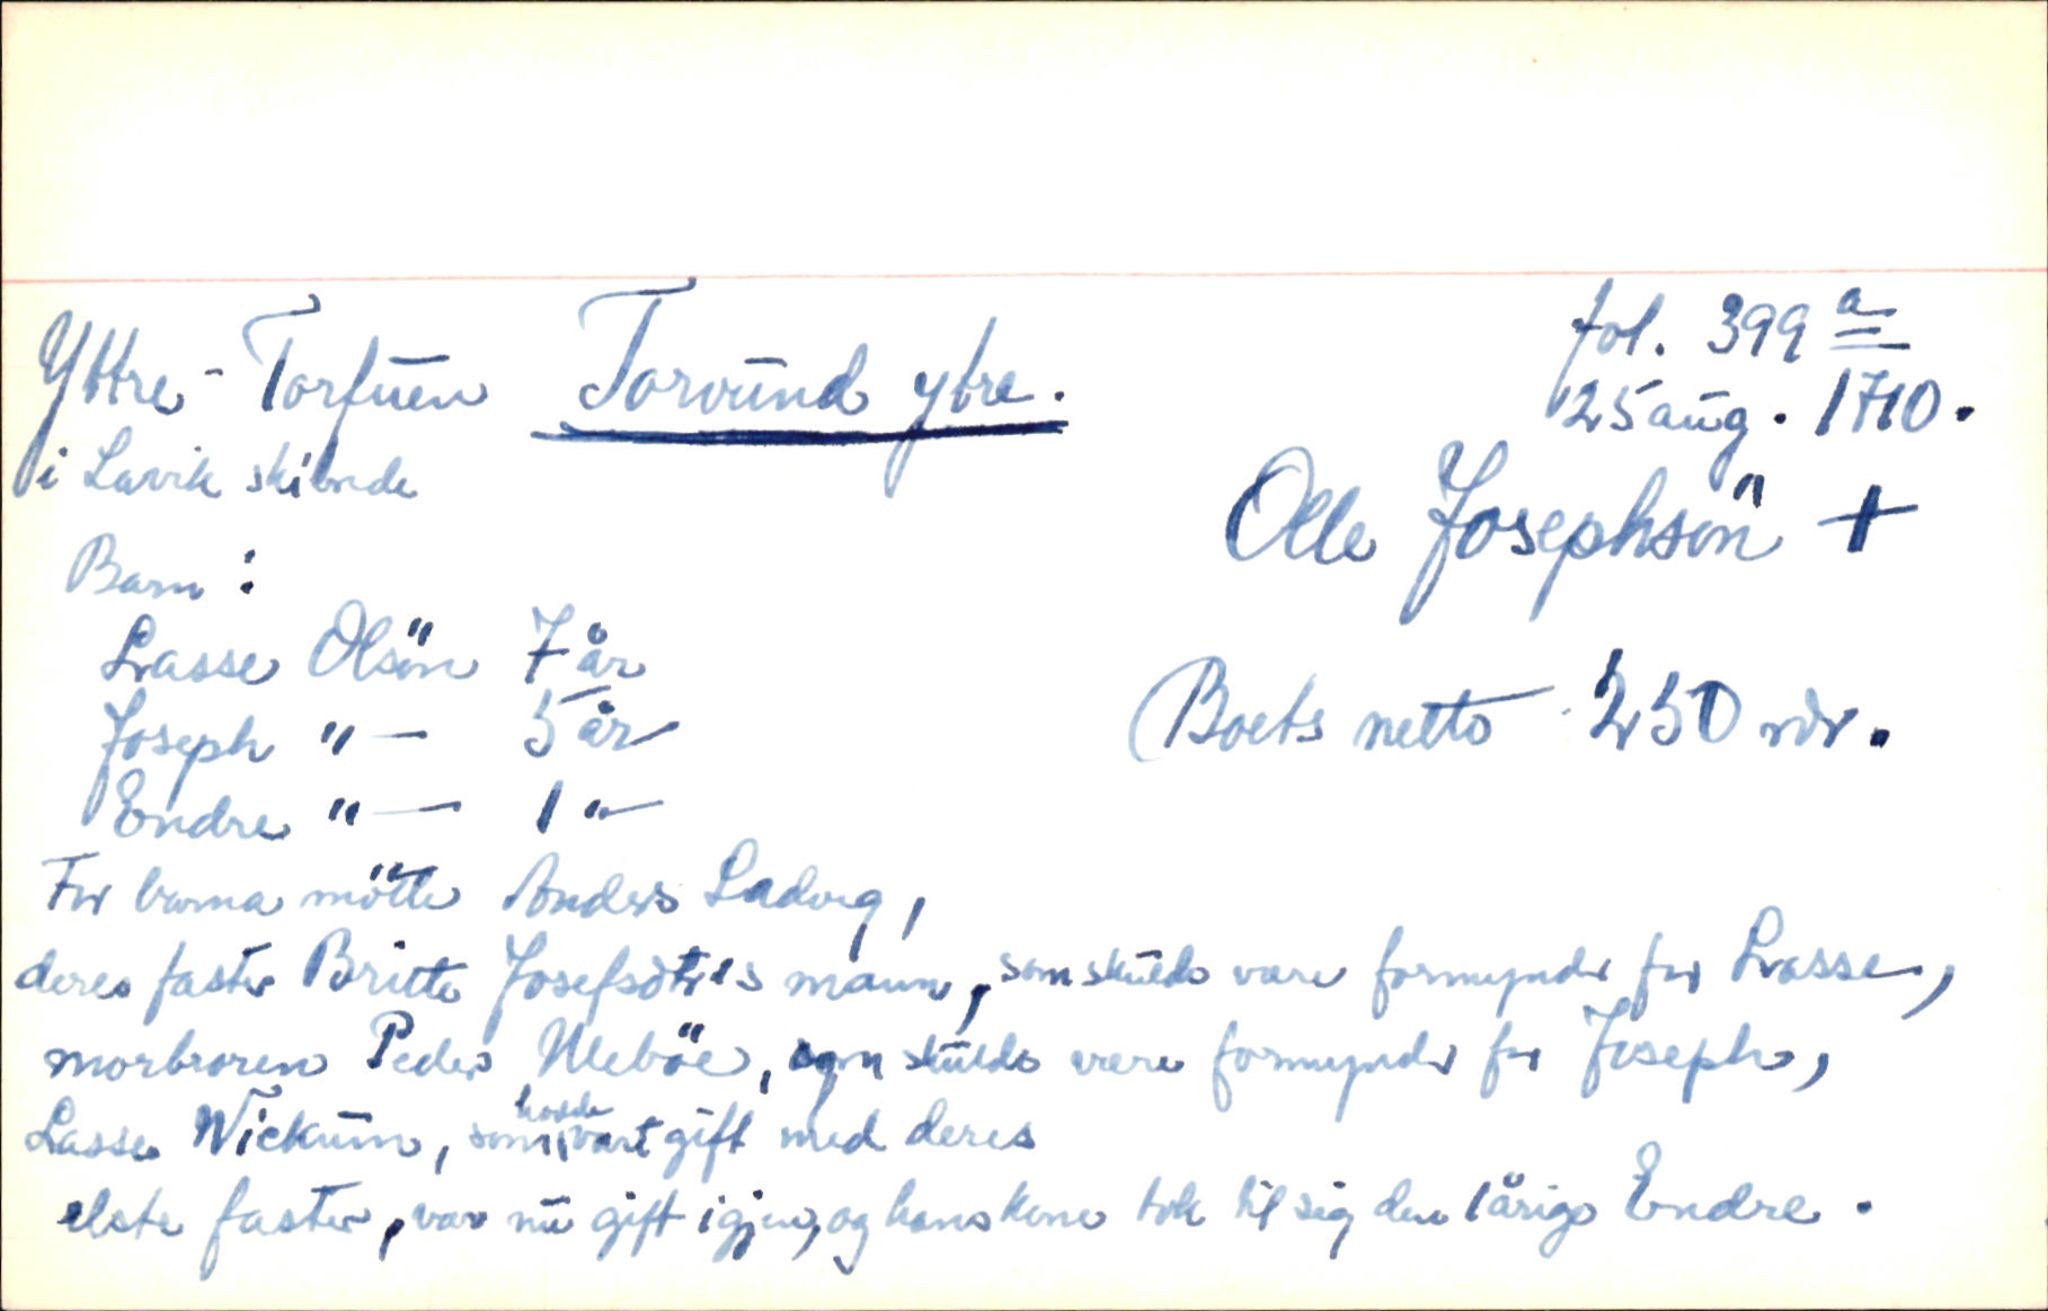 Yttre - Torfuen Torvund ytre. fol. 399 a
25 aug. 1710.
i Lavik skibrede
Olle Josephsön +
Barn:
Lasse Olsön 7 år
Joseph " — 5 år
Boets netto 250 rdr.
Endre " — 1 "—
For barna mötte Anders Ladvig,
deres faster Britte Josefsdtrs mann, som skulde være formynder for Lasse,
morbroren Peder Nlebøe, som skulde være formynder for Joseph,
Lasse Wickum, som hadde vært gift med deres
elste faster, var nu gift igjen, og hans kone tok til sig den 1 årige Endre.